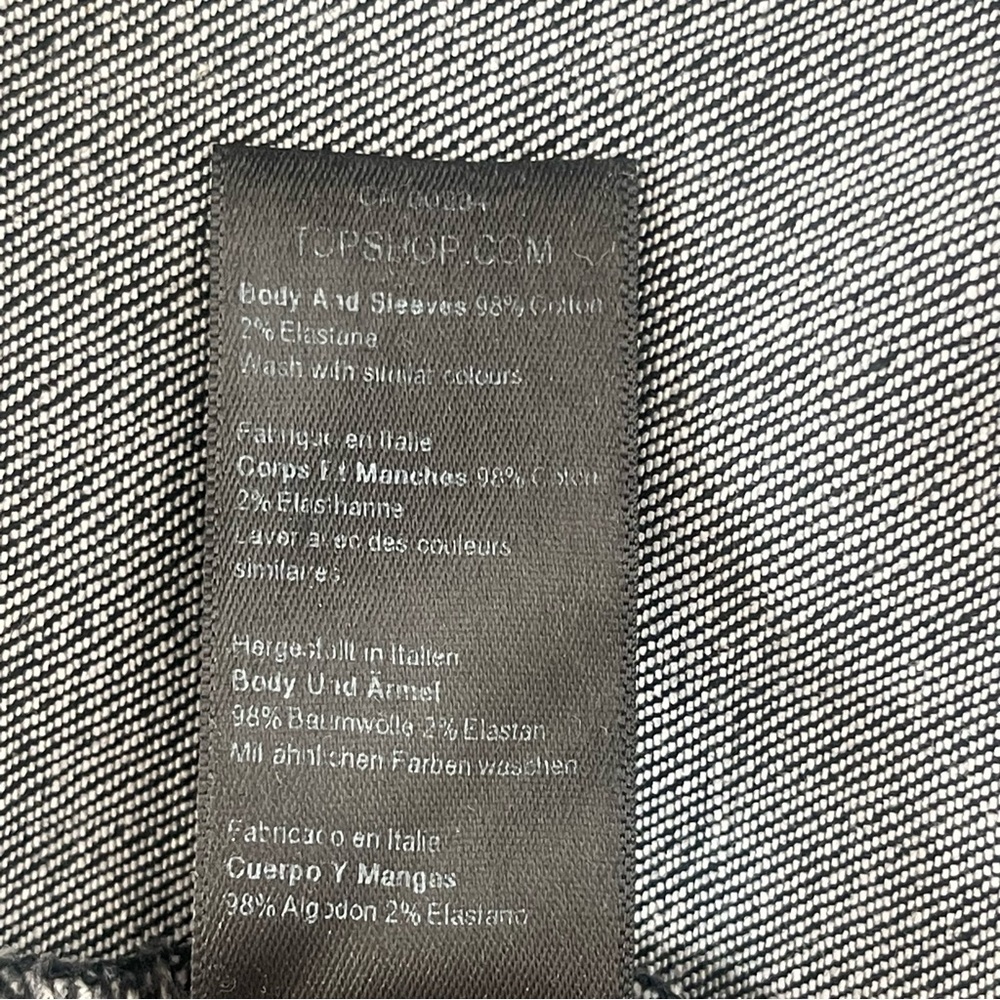 TOPSHOP.COM
Body And Sleeves 98% Cotton
2% Elastane
Wash with similar colours
Fabriqué en Italie
Corps Et Manches 98% Coton
2% Elasthanne
Laver avec des couleurs
similaires
Hergestellt in Italien
Body Und Ärmel
98% Baumwolle 2% Elastan
Mit ähnlichen Farben waschen
Fabricado en Italia
Cuerpo Y Mangas
98% Algodon 2% Elastano